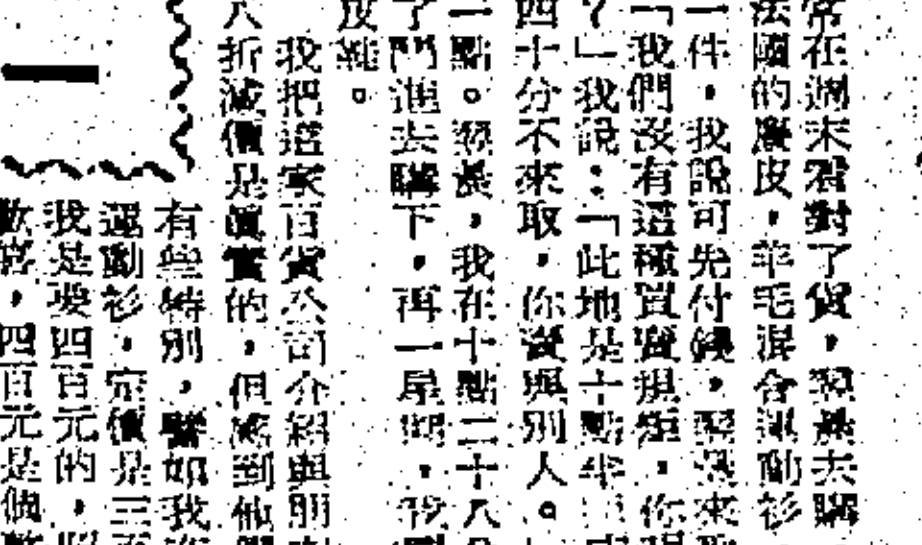 常在週末看對了貨,翌晨去購
法國的麂皮,羊毛混合運動衫
一件,我說可先付錢,翌晨來取
「我們沒有這種買賣規矩,你
?」我說:「此地是十點半
四十分不來取,你賣與別人。
一點。翌晨,我在十點二十八
了門進去購下,再一星期,我
皮鞋。
我把這家百貨公司介紹與朋
八折減價是真實的,但感到他
有些特別,譬如我
運動衫,定價是三
我是要四百元的,
數嘗,四百元是個